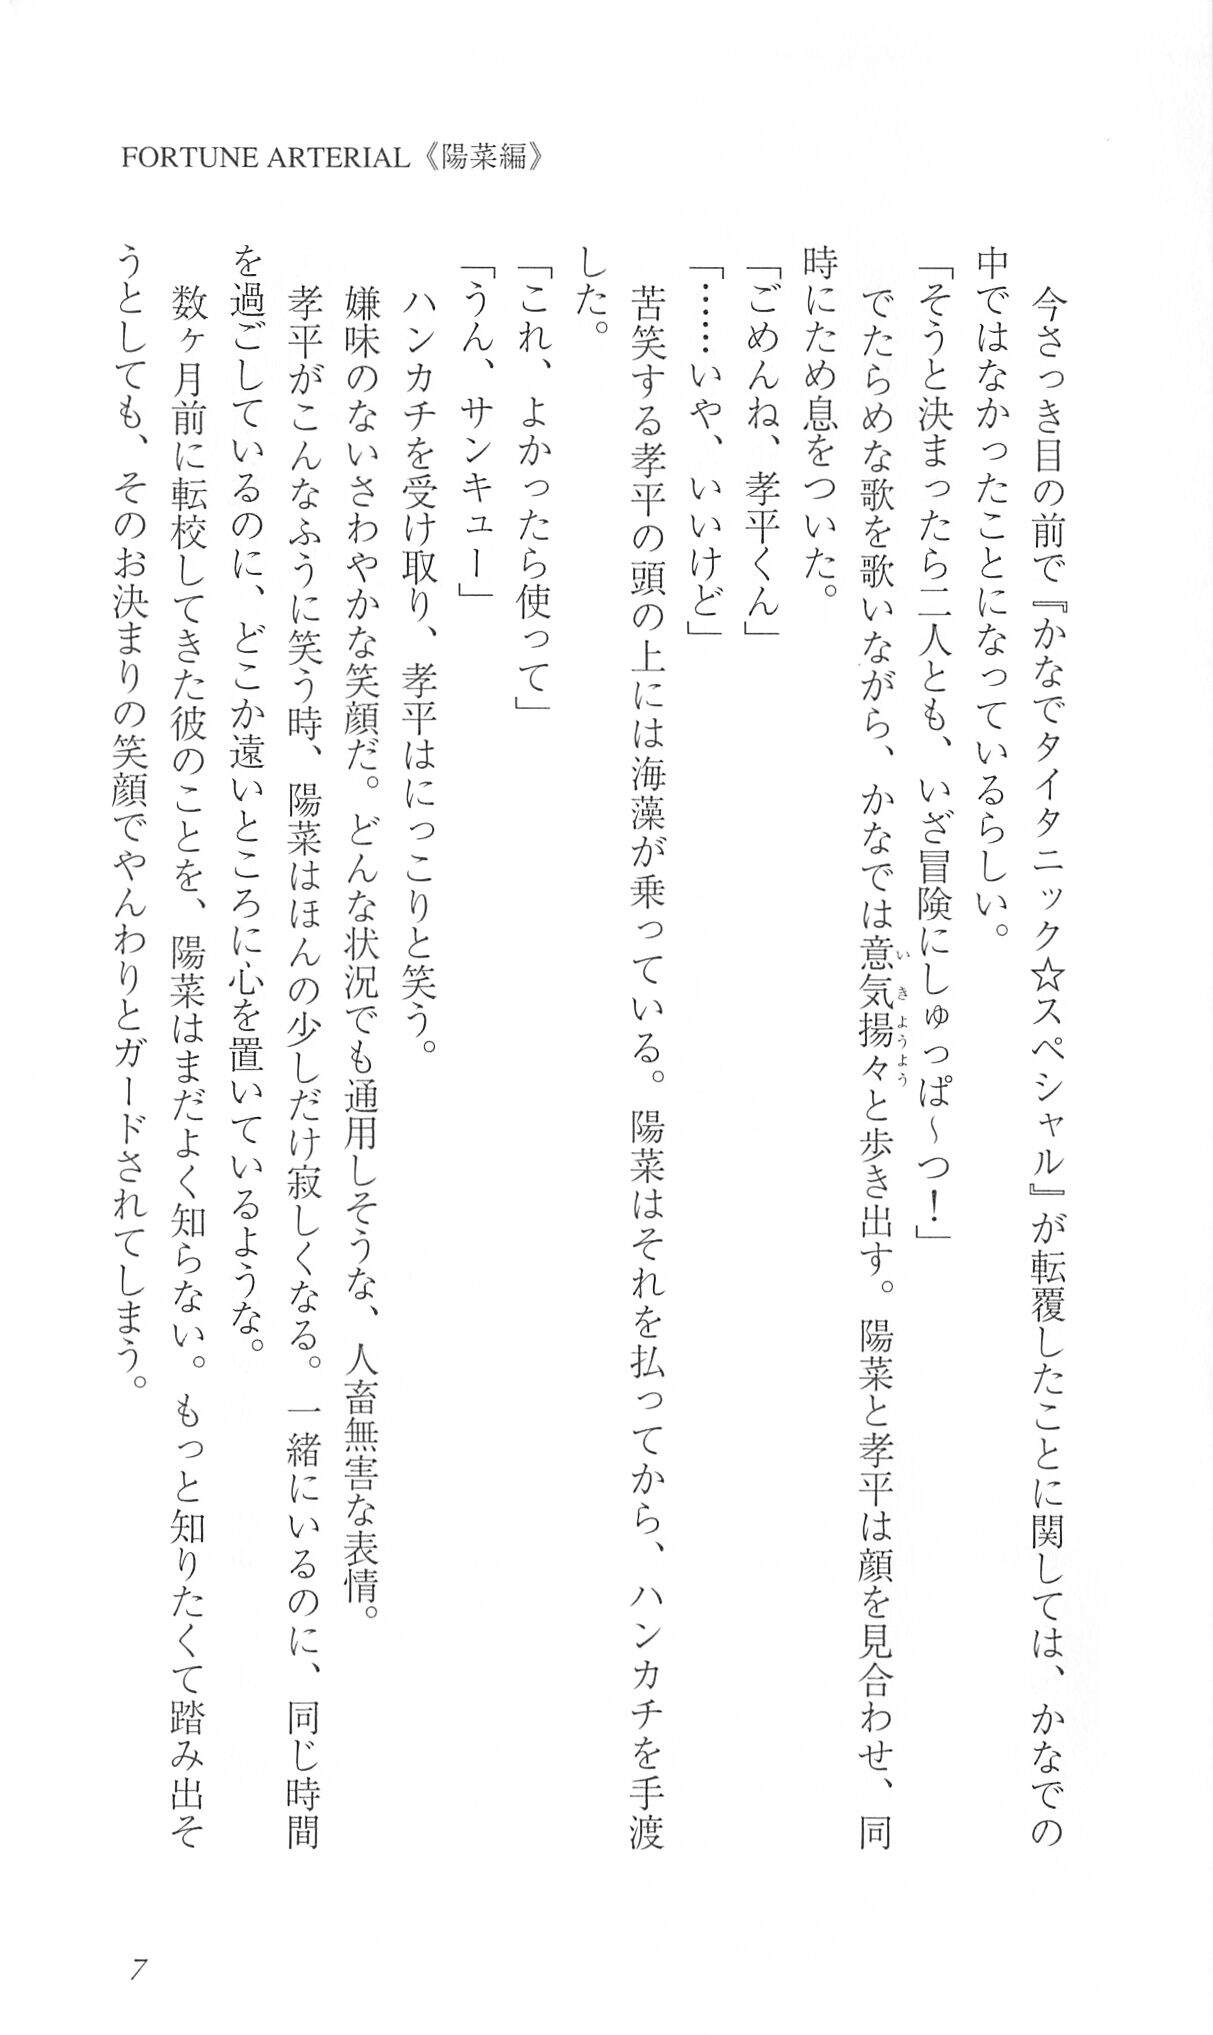 FORTUNE ARTERIAL《陽菜編》
　今さっき目の前で『かなでタイタニック☆スペシャル』が転覆したことに関しては、かなでの
中ではなかったことになっているらしい。
「そうと決まったら二人とも、いざ冒険にしゅっぱ〜つ！」
　でたらめな歌を歌いながら、かなでは意気揚々と歩き出す。陽菜と孝平は顔を見合わせ、同
いきようよう
時にため息をついた。
「ごめんね、孝平くん」
「……いや、いいけど」
　苦笑する孝平の頭の上には海藻が乗っている。陽菜はそれを払ってから、ハンカチを手渡
した。
「これ、よかったら使って」
「うん、サンキュー」
　ハンカチを受け取り、孝平はにっこりと笑う。
　嫌味のないさわやかな笑顔だ。どんな状況でも通用しそうな、人畜無害な表情。
　孝平がこんなふうに笑う時、陽菜はほんの少しだけ寂しくなる。一緒にいるのに、同じ時間
を過ごしているのに、どこか遠いところに心を置いているような。
　数ヶ月前に転校してきた彼のことを、陽菜はまだよく知らない。もっと知りたくて踏み出そ
うとしても、そのお決まりの笑顔でやんわりとガードされてしまう。
7